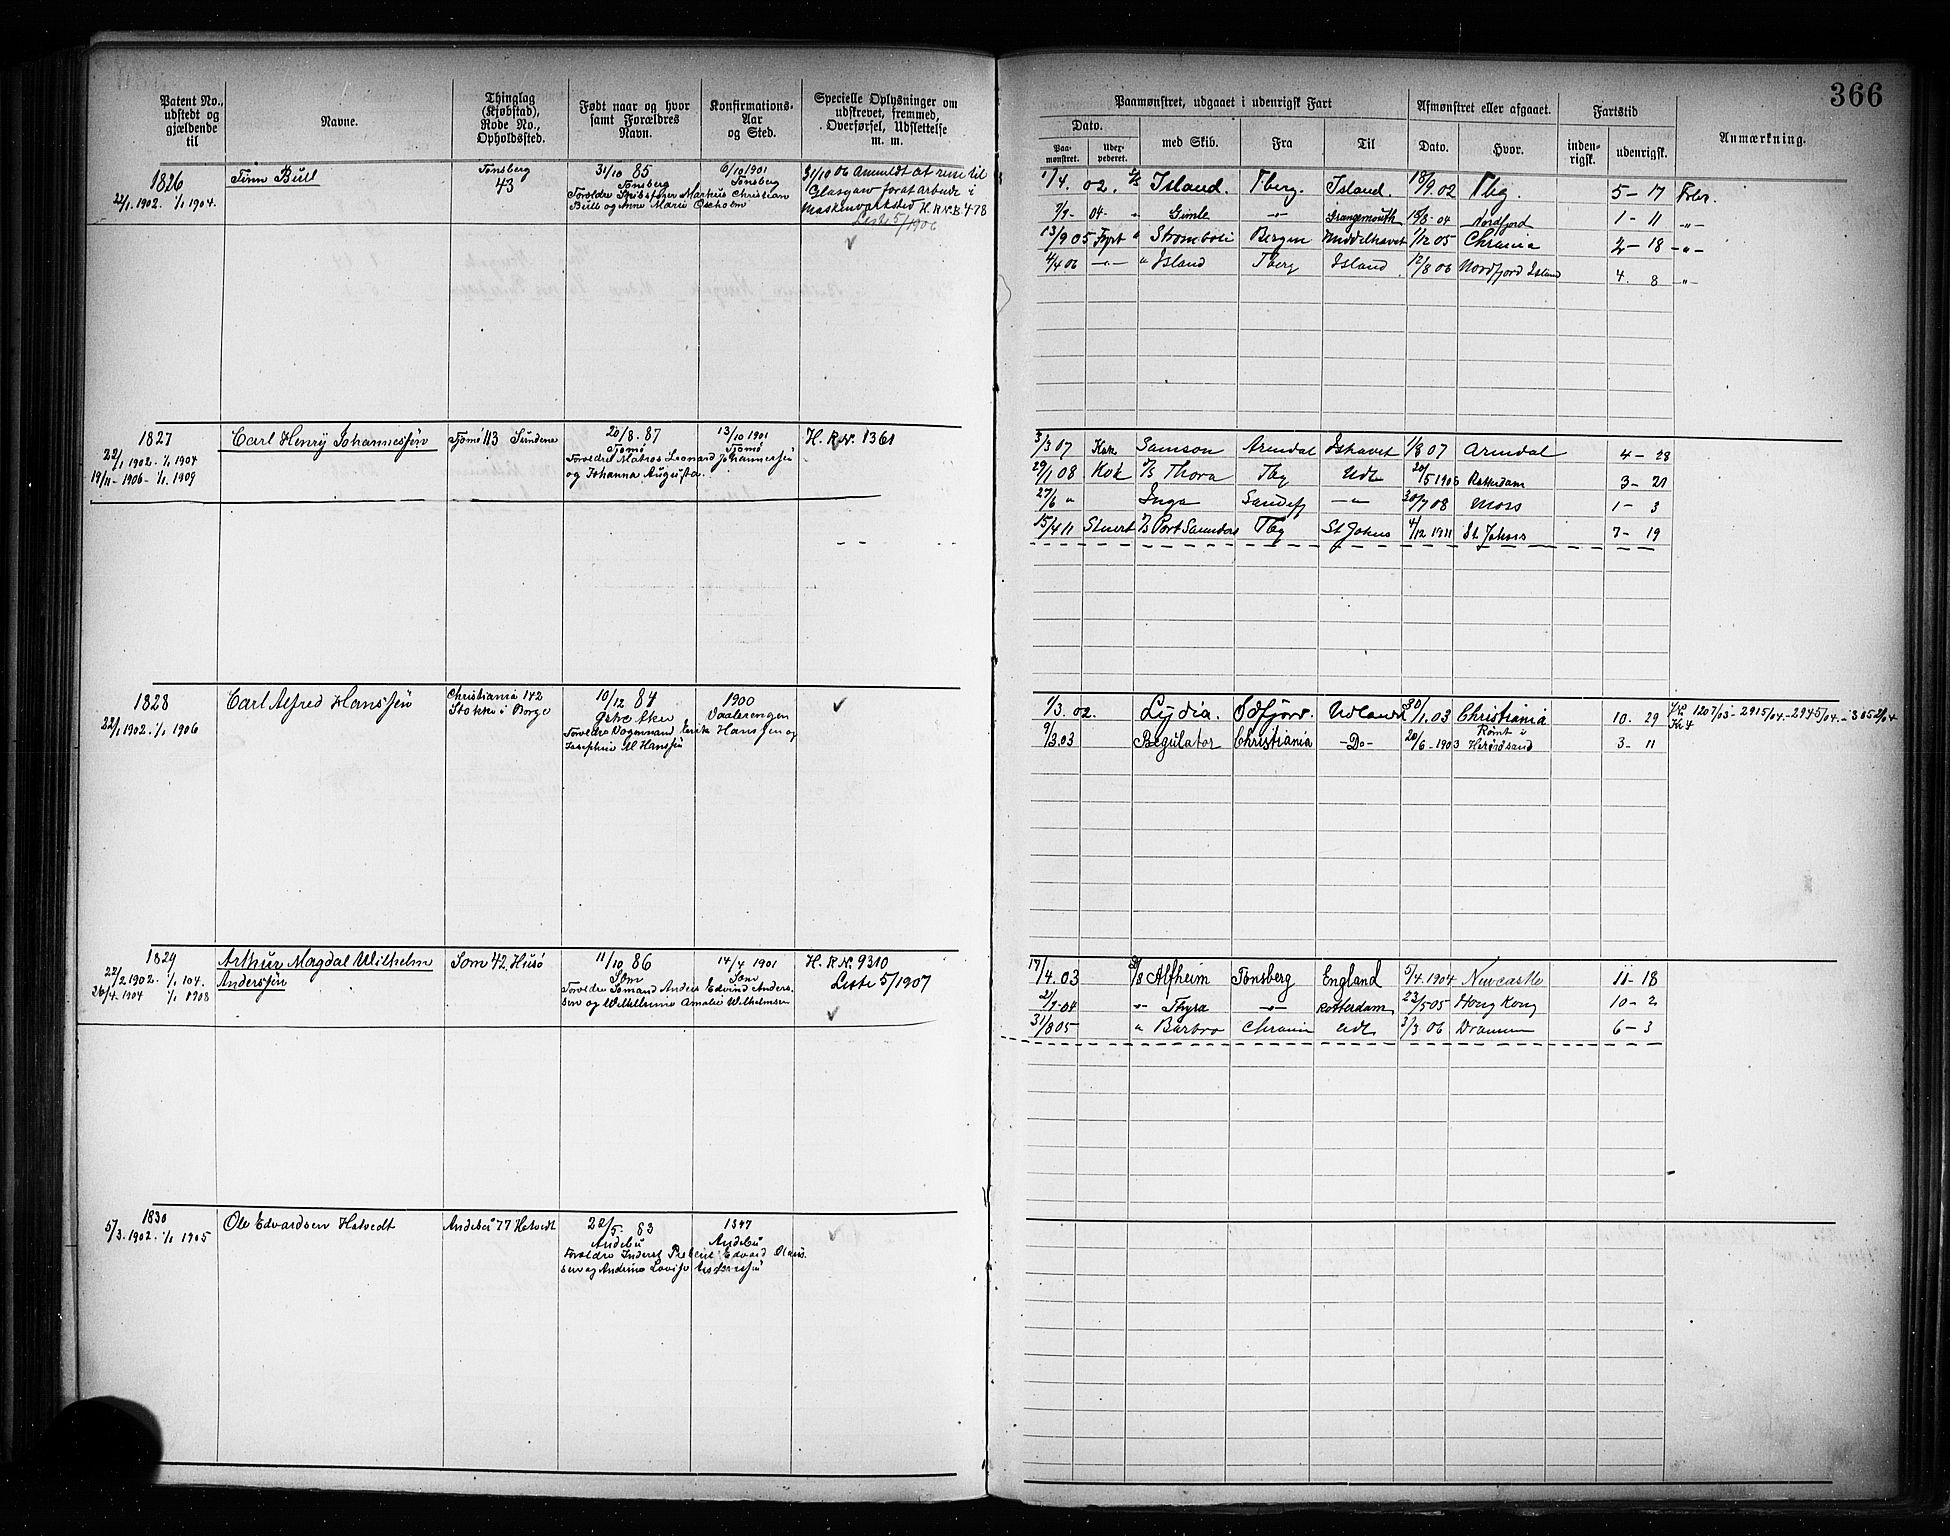 366
Patent No., udstedt og gjældende til
Navne.
Thinglag (Kjøbstad), Rode No., Opholdssted.
Født naar og hvor samt Forældres Navn.
Konfirmations-Aar og Sted.
Specielle Oplysninger om udskrevet, fremmed, Overførsel, Udslettelse m. m.
Paamønstret, udgaaet i udenrigsk Fart
Afmønstret eller afgaaet.
Fartstid
Anmærkning.
Dato.
Paamønstret.
Uderpederet.
med Skib.
Fra
Til
Dato.
Hvor.
indenrigsk.
udenrigsk.
1826
22/1. 1902. 1/1 1904.
Finn Bull
Tønsberg
43
31/10 85
Tønsberg
Forældre Skibsfører Markus Christian
Bull og Anne Marie
6/10 1901
Tønsberg
31/10 06 Anmeldt at reise til
Glasgow for at arbeide i
Maskinværksted H. R. N. B 478
Liste 5/1906
1/4. 02. Island. Tberg. Island. 18/9 02 Tbg. 5 - 17
7/7- 04- " Gimle -"- Grangemouth 15/8- 04 Nordfjord 1 - 11 -"-
13/9 05 Fyrb " Stromboli Bergen Middelhavet 1/12 05 Chrania 2 - 18 -"-
4/4 06 -"- " Island Tberg Island 12/8 06 Nordfjord Island 4. 8 -"-
1827
22/1 1902. 1/1 1904
19/11- 1906- 1/1 1909
Carl Henry Johannessen
Tjømø 113 Sundene
20/8. 87
Tjømø
Forældre Matros Leonard Johannessen
og Johanna Augusta.
13/10 1901
Tjømø
H. R. N. 1361
3/3 07 Kok Samson Arendal Ishavet 1/8 07 Arendal 4 - 28
29/1 08 Kok Thora Tbg Udl 20/5 1908 Rotterdam 3 - 21
27/6 " Inga Sandefj -"- 30/7 08 Moss 1 - 3
15/4 11 Stuert Port Saunders Tbg St Johns 4/12 1911 St Johns 7 - 19
1828
22/1 1902. 1/1 1906
Carl Alfred Hanssen
Christiania 142
Stokke i Borge
10/12 84
Østre Aker
Forældre Vognmand Hanssen og
Josephine M Hanssen
1900
Vaalerengen
1/3. 02. Lydia. Odfjord. Udland 30/1 03 Christiania 10. 29 1207/03 - 2915/04 - 2945/04 - 3052/04
9/3.03 Regulator Christiania -Do- 20/6 - 1903 Rømt i Hernösand 3 - 11
1829
22/2 1902. 1/1 04.
26/4. 1904 1/1 1908
Arthur Magdal Wilhelm
Anderssen
Sem 42. Husø
11/10 86
Sem
Forældre Sømand Anders Edvind Anders-
sen og Wilhelmine Amalie Wilhelmsen
14/4 1901
Sem
H. R. N. 9310
Liste 5/1907
17/4. 03 Alfheim Tønsberg England 5/4. 1904 Newcastle 11 - 18
21/7-04 -"- Thyra -"- Rotterdam 23/5 05 Hong Kong 10 - 2
31/8 05 " Barbro Chrania Udl 3/3 06 Drammen 6 - 3
1830
5/3. 1902. 1/1 1905
Ole Edvardsen Hotvedt
Andebu 77 Hotvedt
22/5. 83
Andebu
Forældre Inderst Edvard Olaus-
sen og Andrine Lovise Anderssen
1897
Andebu